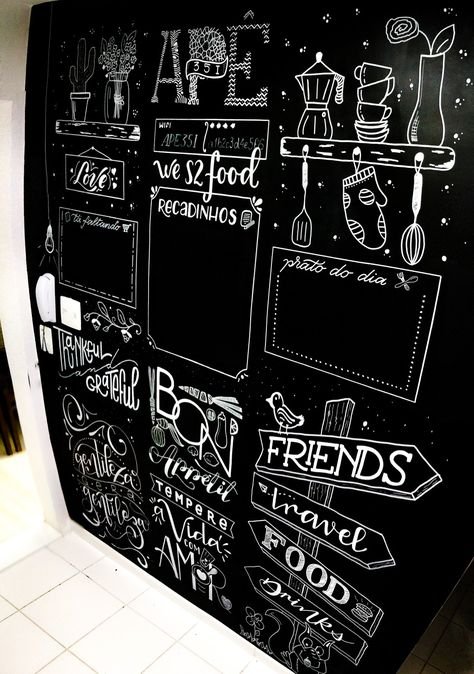 Love
tá faltando
THANKFUL
GRATEFUL
gentileza
gentileza
APÊ
351
WIFI
APE351
we S2 food
RECADINHOS
BON
Appétit
TEMPERE
a Vida
COM
AMOR
prato do dia
FRIENDS
travel
FOOD
DRINKS